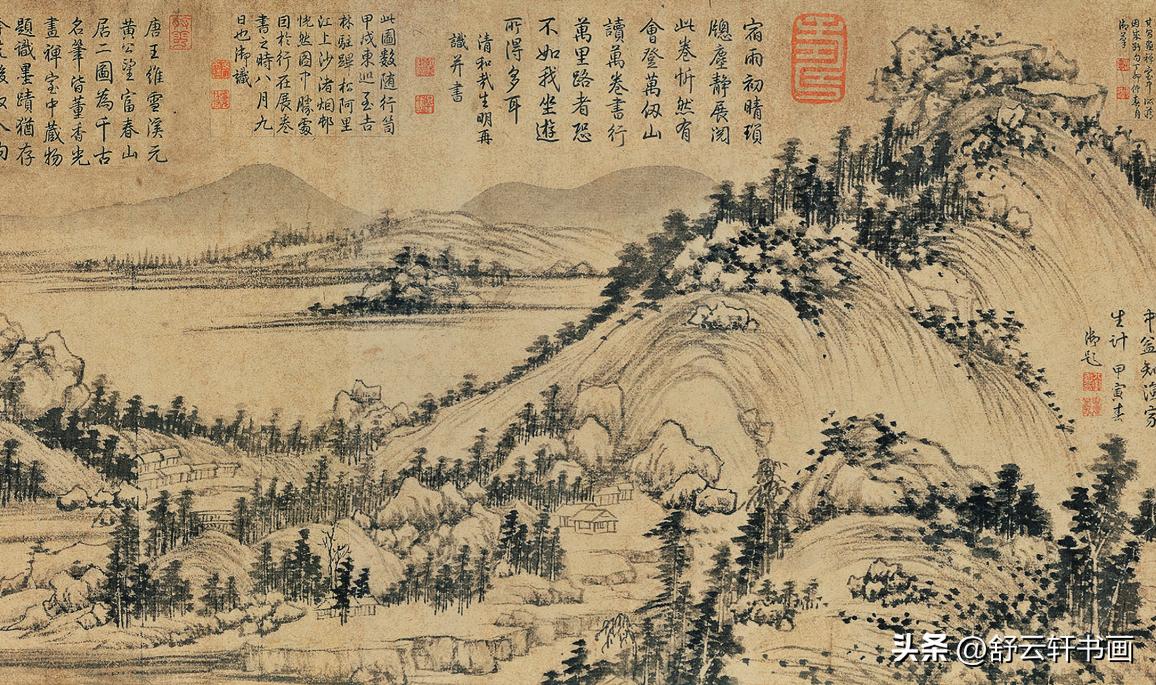 御筆
中益知漁家
生計 甲寅春
御題
宿雨初晴瑣
牕塵靜展閱
此卷忻然有
會登萬仭山
讀萬卷書行
萬里路者恐
不如我坐遊
所得多耳
清和哉生明再
識并書
此圖數随行笥
甲戌東巡至吉
林駐蹕松阿里
江上沙渚烟邨
恍然圖中勝處
因於行在展卷
書之時八月九
日也御識
唐王維雪溪元
黄公望富春山
居二圖為千古
名筆皆董香光
畫禪室中藏物
題識墨蹟猶存
头条 @舒云轩书画